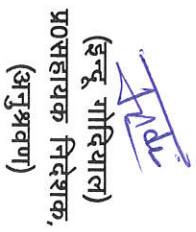 Indu
(इन्दू गोदियाल)
प्र०सहायक निदेशक,
(अनुश्रवण)